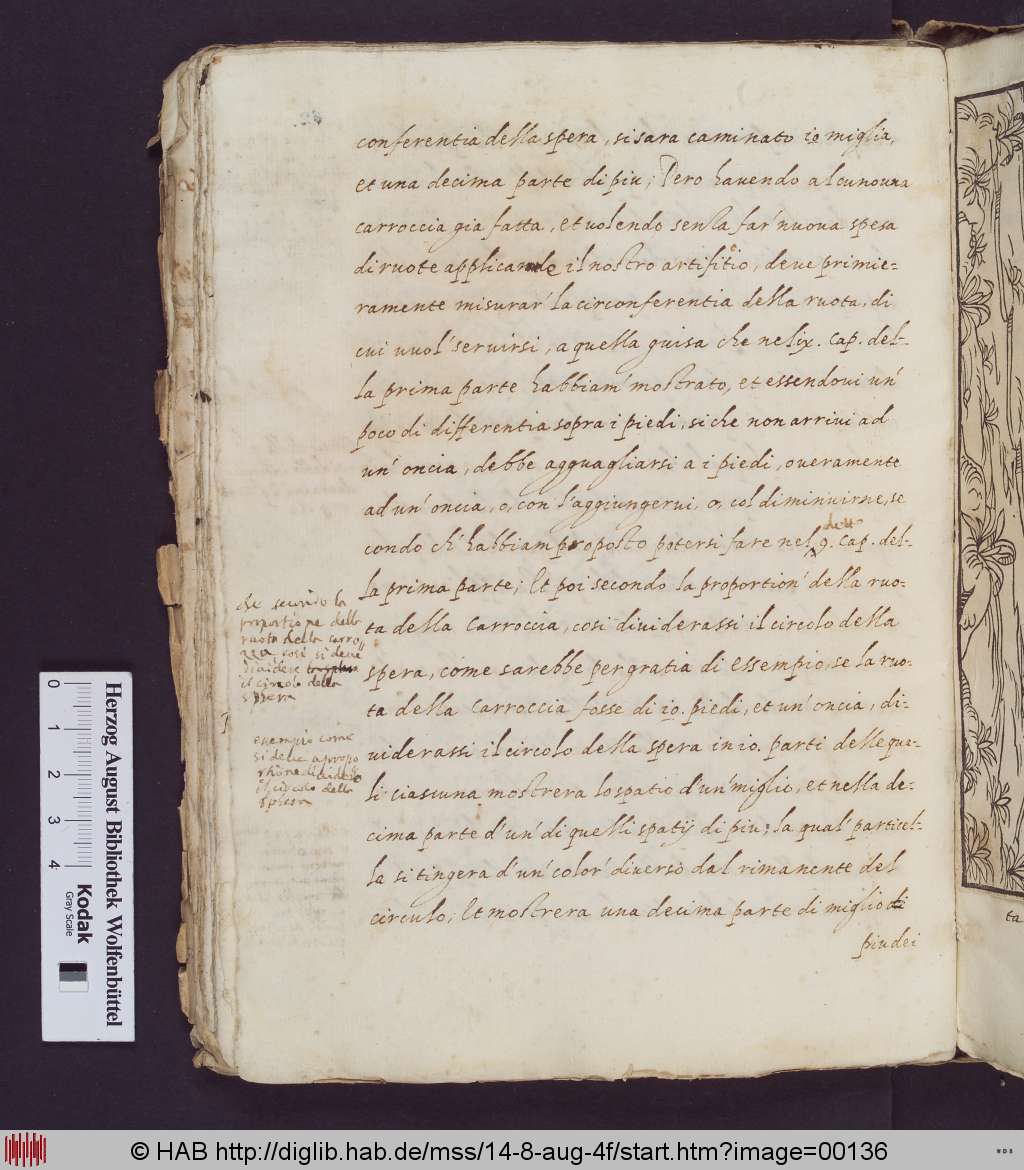 conferentia della spera, si sara caminato io miglia,
et una decima parte di piu; Pero havendo alcuno una
carroccia gia fatta, et volendo senza far' nuova spesa
di ruote applicande il nostro artifitio, deve primie=
ramente misurar' la circonferentia della ruota, di
cui vuol' servirsi, a quella guisa che nel ix. Cap. del=
la prima parte habbiam' mostrato, et essendovi un'
poco di differentia sopra i piedi, si che non arrivi ad
un' oncia, debbe agguagliarsi a i piedi, overamente
ad un' oncia, o, con l'aggiungervi, o, col diminuirne, se
condo ch' habbiam proposto potersi fare nel detto 9. Cap. del=
la prima parte; Et poi secondo la proportion' della ruo=
ta della Carroccia, cosi dividerassi il circolo della
spera, come sarebbe per gratia di essempio, se la ruo=
ta della Carroccia fosse di io. piedi, et un' oncia, di=
viderassi il circolo della spera in io. parti delle qua=
li ciascuna mostrera lo spatio d'un' miglio, et nella de=
cima parte d'un' di quelli spatij di piu; la qual' particel=
la si tingera d'un' color' diverso dal rimanente del
circulo; Et mostrera una decima parte di miglio di
piu dei
che secondo la
proportione della
ruota della carro
zza cosi si deve
dividere
il circolo della
spera
essempio come
si deve a propo
rtione dividere
il circolo della
spera
ta
0 1 2 3 4
Herzog August Bibliothek Wolfenbüttel
Kodak
Gray Scale
© HAB http://diglib.hab.de/mss/14-8-aug-4f/start.htm?image=00136